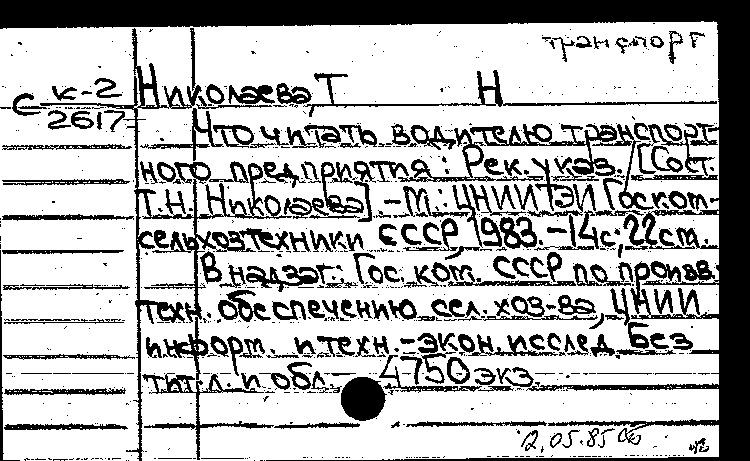 транспорт
С к-2
2617
Николаева, Т Н
Что читать водителю транспорт-
ного предприятия: Рек. указ. / [Сост.
Т.Н. Николаева]. - М.: ЦНИИТЭИ Госком-
сельхозтехники СССР, 1983. - 14с.; 22см.
В надзаг.: Гос. ком. СССР по произв.
техн. обеспечению сел. хоз-ва, ЦНИИ
информ. и техн.-экон. исслед. Без
тит. л. и обл. - 4750 экз.
2.05.85